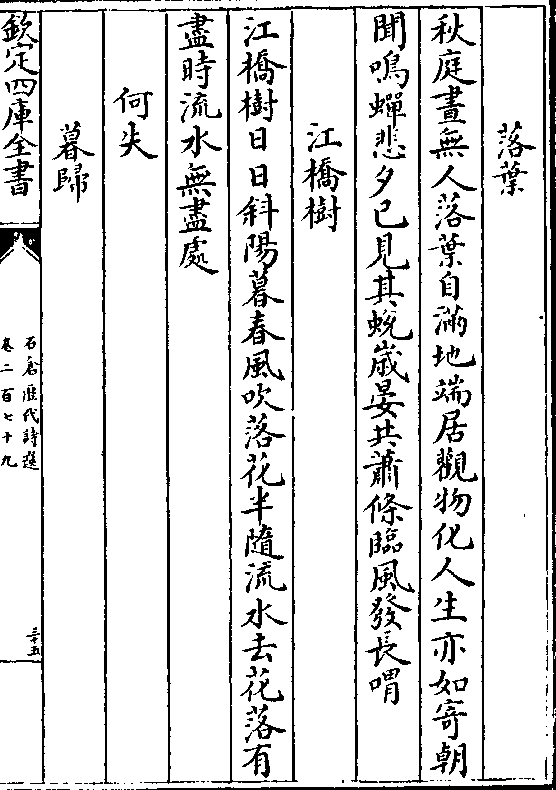 落葉
秋庭晝無人落葉自滿地端居觀物化人生亦如寄朝
聞鳴蟬悲夕已見其蛻歲晏共蕭條臨風發長喟
江橋樹
江橋樹日日斜陽暮春風吹落花半隨流水去花落有
盡時流水無盡處
何失
暮歸
欽定四庫全書
石倉歷代詩選
卷二百七十九
三十五